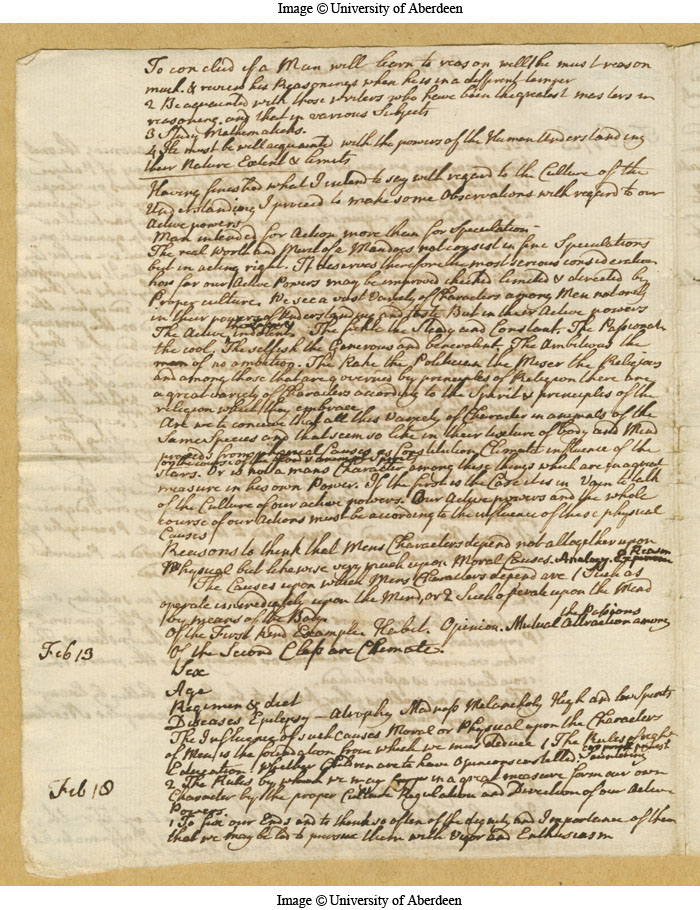 Image © University of Aberdeen
To conclud if a Man will learn to reason well he must reason
much. & review his Reasonings when he is in a different temper
2 Be acquainted with those writers who have been the greatest masters in
reasoning. and that in various Subjects
3 Study Mathematics.
4 He must be well acquainted with the powers of the Human Understanding
their Nature Extent & limits
Having finished what I intend to say with regard to the Culture of the
Understanding I proceed to make some Observations with regard to our
Active powers
Man intended for Action more than for Speculation
The real Worth and Merit of a Man does not consist in fine Speculations
but in acting right. It deserves therefore the most serious consideration
how far our Active Powers may be improved checked limited & directed by
Proper culture. We see a vast Variety of Characters among Men not only
in their powers of Understanding and taste But in their Active powers
The Active The Indolent. The fickle the Steady and Constant. The Passionate
the cool, The selfish the Generous and benevolent, The Ambitious the
man of no ambition. The Rake the Politician the Miser the Religious
and among those that are governed by principles of Religion there are
a great variety of Characters according to the Spirit & principles of the
religion which they embrace
Are we to conceive that all this Variety of Character in animals of the
Same Species and that seem so like in their texture of body and Mind
proceeds from physical Causes as Constitution Climate influence of the
Stars. Or is not a mans Character among these things which are in a great
measure in his own Power. If the first is the Case it is in Vain to talk
of the Culture of our active powers. Our Active powers and the whole
course of our Actions must be according to the influence of these physical
Causes
Reasons to think that Mens Characters depend not altogether upon
Physical but likewise very much upon Moral Causes. Analogy. & Reason
The Causes upon which Mens Characters depend are 1 Such as
operate immediately upon the Mind, or 2 Such operate upon the Mind
by means of the Body
Of the First kind Example Habit. Opinion. Mutual Attraction among the Passions
Feb 13
Of the Second Class are Climate.
Sex
Age
Regimen & diet
Diseases Epilepsy — Atrophy Madness Melancholy High and low Spirits
The Influence of such Causes Moral or Physical upon the Characters
of Men, is the foundation from which we must deduce 1 The Rules of right
Education / Whether Children are to have Opinions instilled
Feb 18
2 The Rules by which we may in a great measure form our own
Character by the proper Culture Regulation and Direction of our Active
Powers.
1 To fix our Ends and to think so often of the dignity and Importance of them
that we may be led to pursue them with Vigor and Enthusiasm
Image © University of Aberdeen